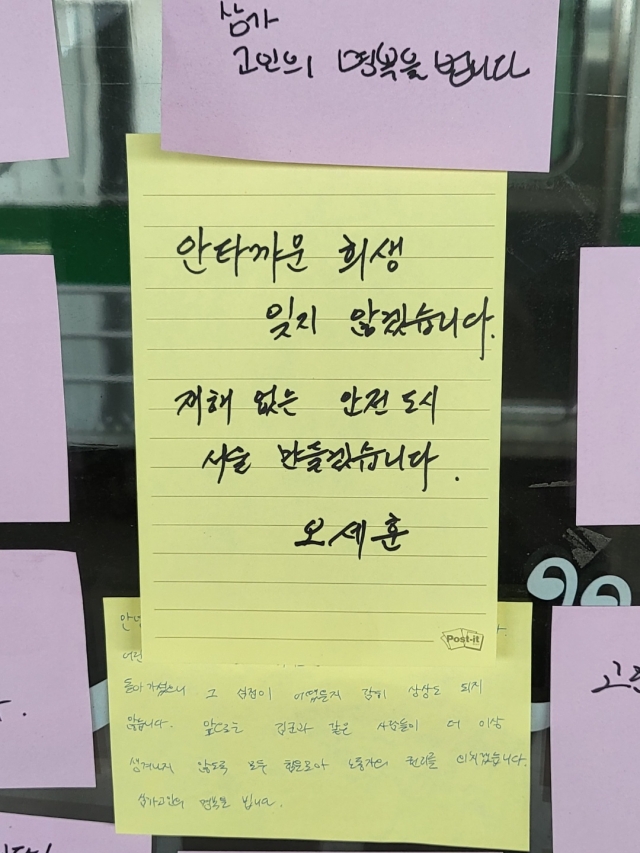 삼가
고인의 명복을 빕니다
안타까운 희생
잊지 않겠습니다.
재해 없는 안전 도시
서울 만들겠습니다.
오세훈
Post-it
돌아가셨으니 그 심정이 어땠을지 감히 상상도 되지
않습니다. 앞으로는 김군과 같은 사람들이 더 이상
생겨나지 않도록 모두 힘을 모아 노동자의 권리를 외치겠습니다.
삼가 고인의 명복을 빕니다.